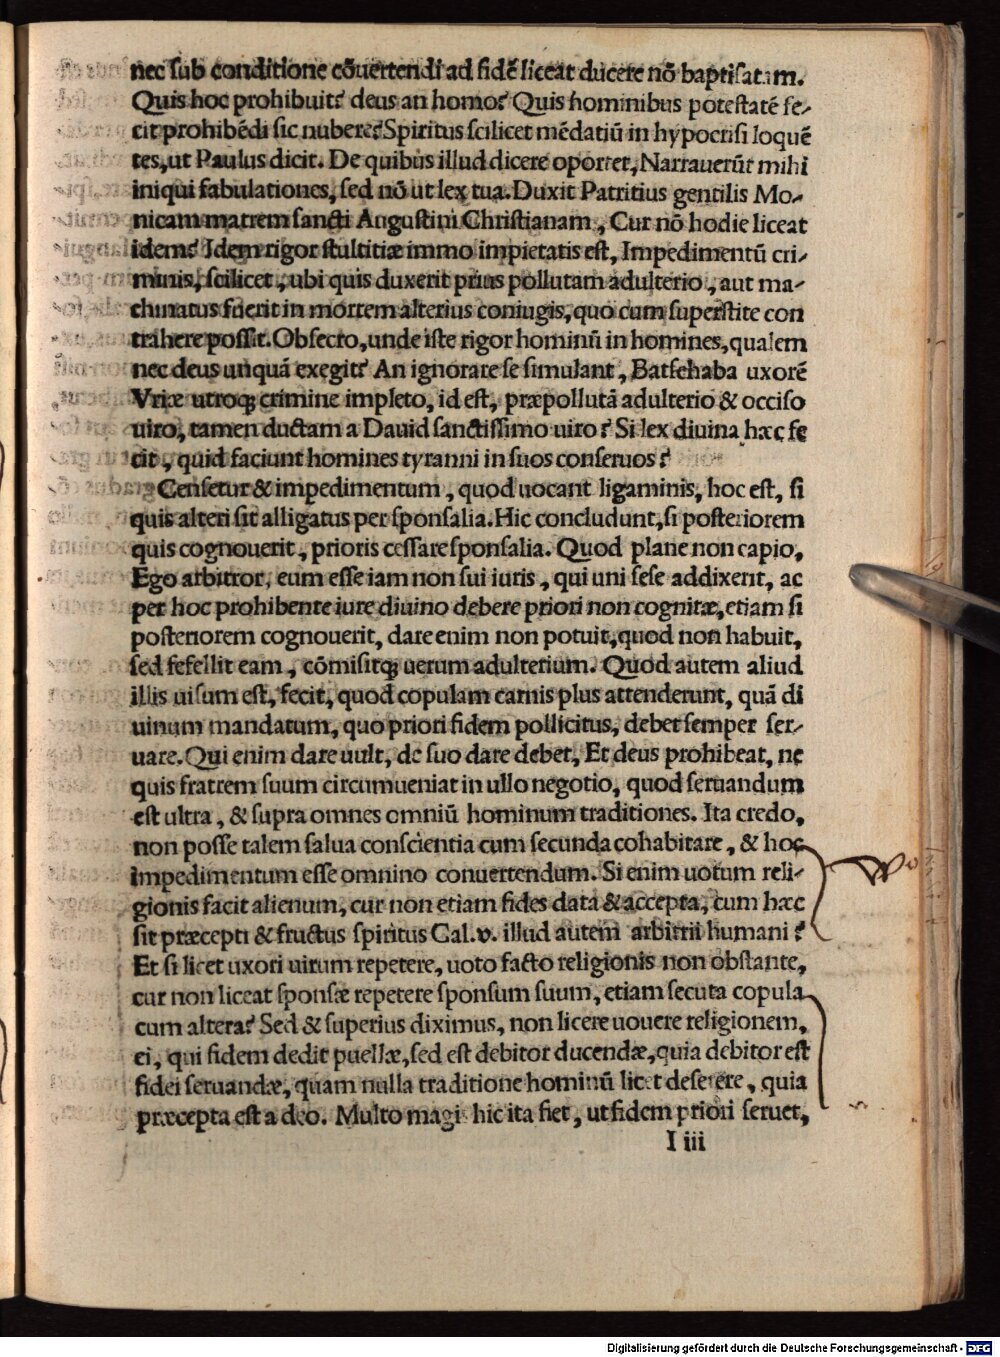 nec sub conditione cõuertendi ad fidẽ liceat ducere nõ baptisatam.
Quis hoc prohibuit? deus an homo? Quis hominibus potestatẽ fe-
cit prohibẽdi sic nubere? Spiritus scilicet mẽdatiũ in hypocrisi loquẽ
tes, ut Paulus dicit. De quibus illud dicere oportet, Narrauerũt mihi
iniqui fabulationes, sed nõ ut lex tua. Duxit Patritius gentilis Mo-
nicam matrem sancti Augustini Christianam, Cur nõ hodie liceat
idem? Idem rigor stultitiæ immo impietatis est, Impedimentũ cri-
minis, scilicet, ubi quis duxerit prius pollutam adulterio, aut ma-
chinatus fuerit in mortem alterius coniugis, quo cum superstite con
trahere possit. Obsecro, unde iste rigor hominũ in homines, qualem
nec deus unquã exegit? An ignorare se simulant, Batsehaba uxorẽ
Vriæ utroqꝫ crimine impleto, id est, præpollutã adulterio & occiso
uiro, tamen ductam a Dauid sanctissimo uiro? Si lex diuina hæc fe
cit, quid faciunt homines tyranni in suos conseruos?
Censetur & impedimentum, quod uocant ligaminis, hoc est, si
quis alteri sit alligatus per sponsalia. Hic concludunt, si posteriorem
quis cognouerit, prioris cessare sponsalia. Quod plane non capio,
Ego arbitror, eum esse iam non sui iuris, qui uni sese addixerit, ac
per hoc prohibente iure diuino debere priori non cognitæ, etiam si
posteriorem cognouerit, dare enim non potuit, quod non habuit,
sed fefellit eam, cõmisitqꝫ uerum adulterium. Quod autem aliud
illis uisum est, fecit, quod copulam carnis plus attenderunt, quã di
uinum mandatum, quo priori fidem pollicitus, debet semper ser-
uare. Qui enim dare uult, de suo dare debet, Et deus prohibeat, ne
quis fratrem suum circumueniat in ullo negotio, quod seruandum
est ultra, & supra omnes omniũ hominum traditiones. Ita credo,
non posse talem salua conscientia cum secunda cohabitare, & hoc
impedimentum esse omnino conuertendum. Si enim uotum reli-
gionis facit alienum, cur non etiam fides data & accepta, cum hæc
sit præcepti & fructus spiritus Gal.v. illud autem arbitrii humani?
Et si licet uxori uirum repetere, uoto facto religionis non obstante,
cur non liceat sponsæ repetere sponsum suum, etiam secuta copula
cum altera? Sed & superius diximus, non licere uouere religionem,
ei, qui fidem dedit puellæ, sed est debitor ducendæ, quia debitor est
fidei seruandæ, quam nulla traditione hominũ licet deserere, quia
præcepta est a deo. Multo magis hic ita fiet, ut fidem priori seruet,
I iii
Digitalisierung gefördert durch die Deutsche Forschungsgemeinschaft - DFG